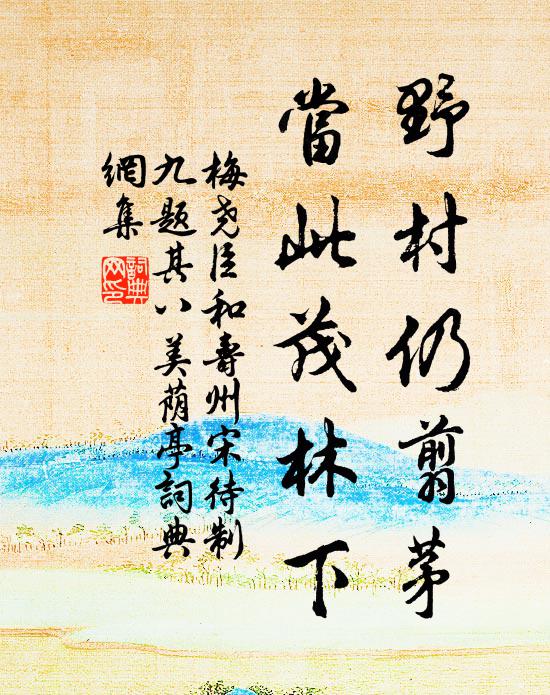 野村仍翦茅
當此茂林下
梅堯臣和壽州宋待制
九題其八美蔭亭詞典
網集
詞典網印